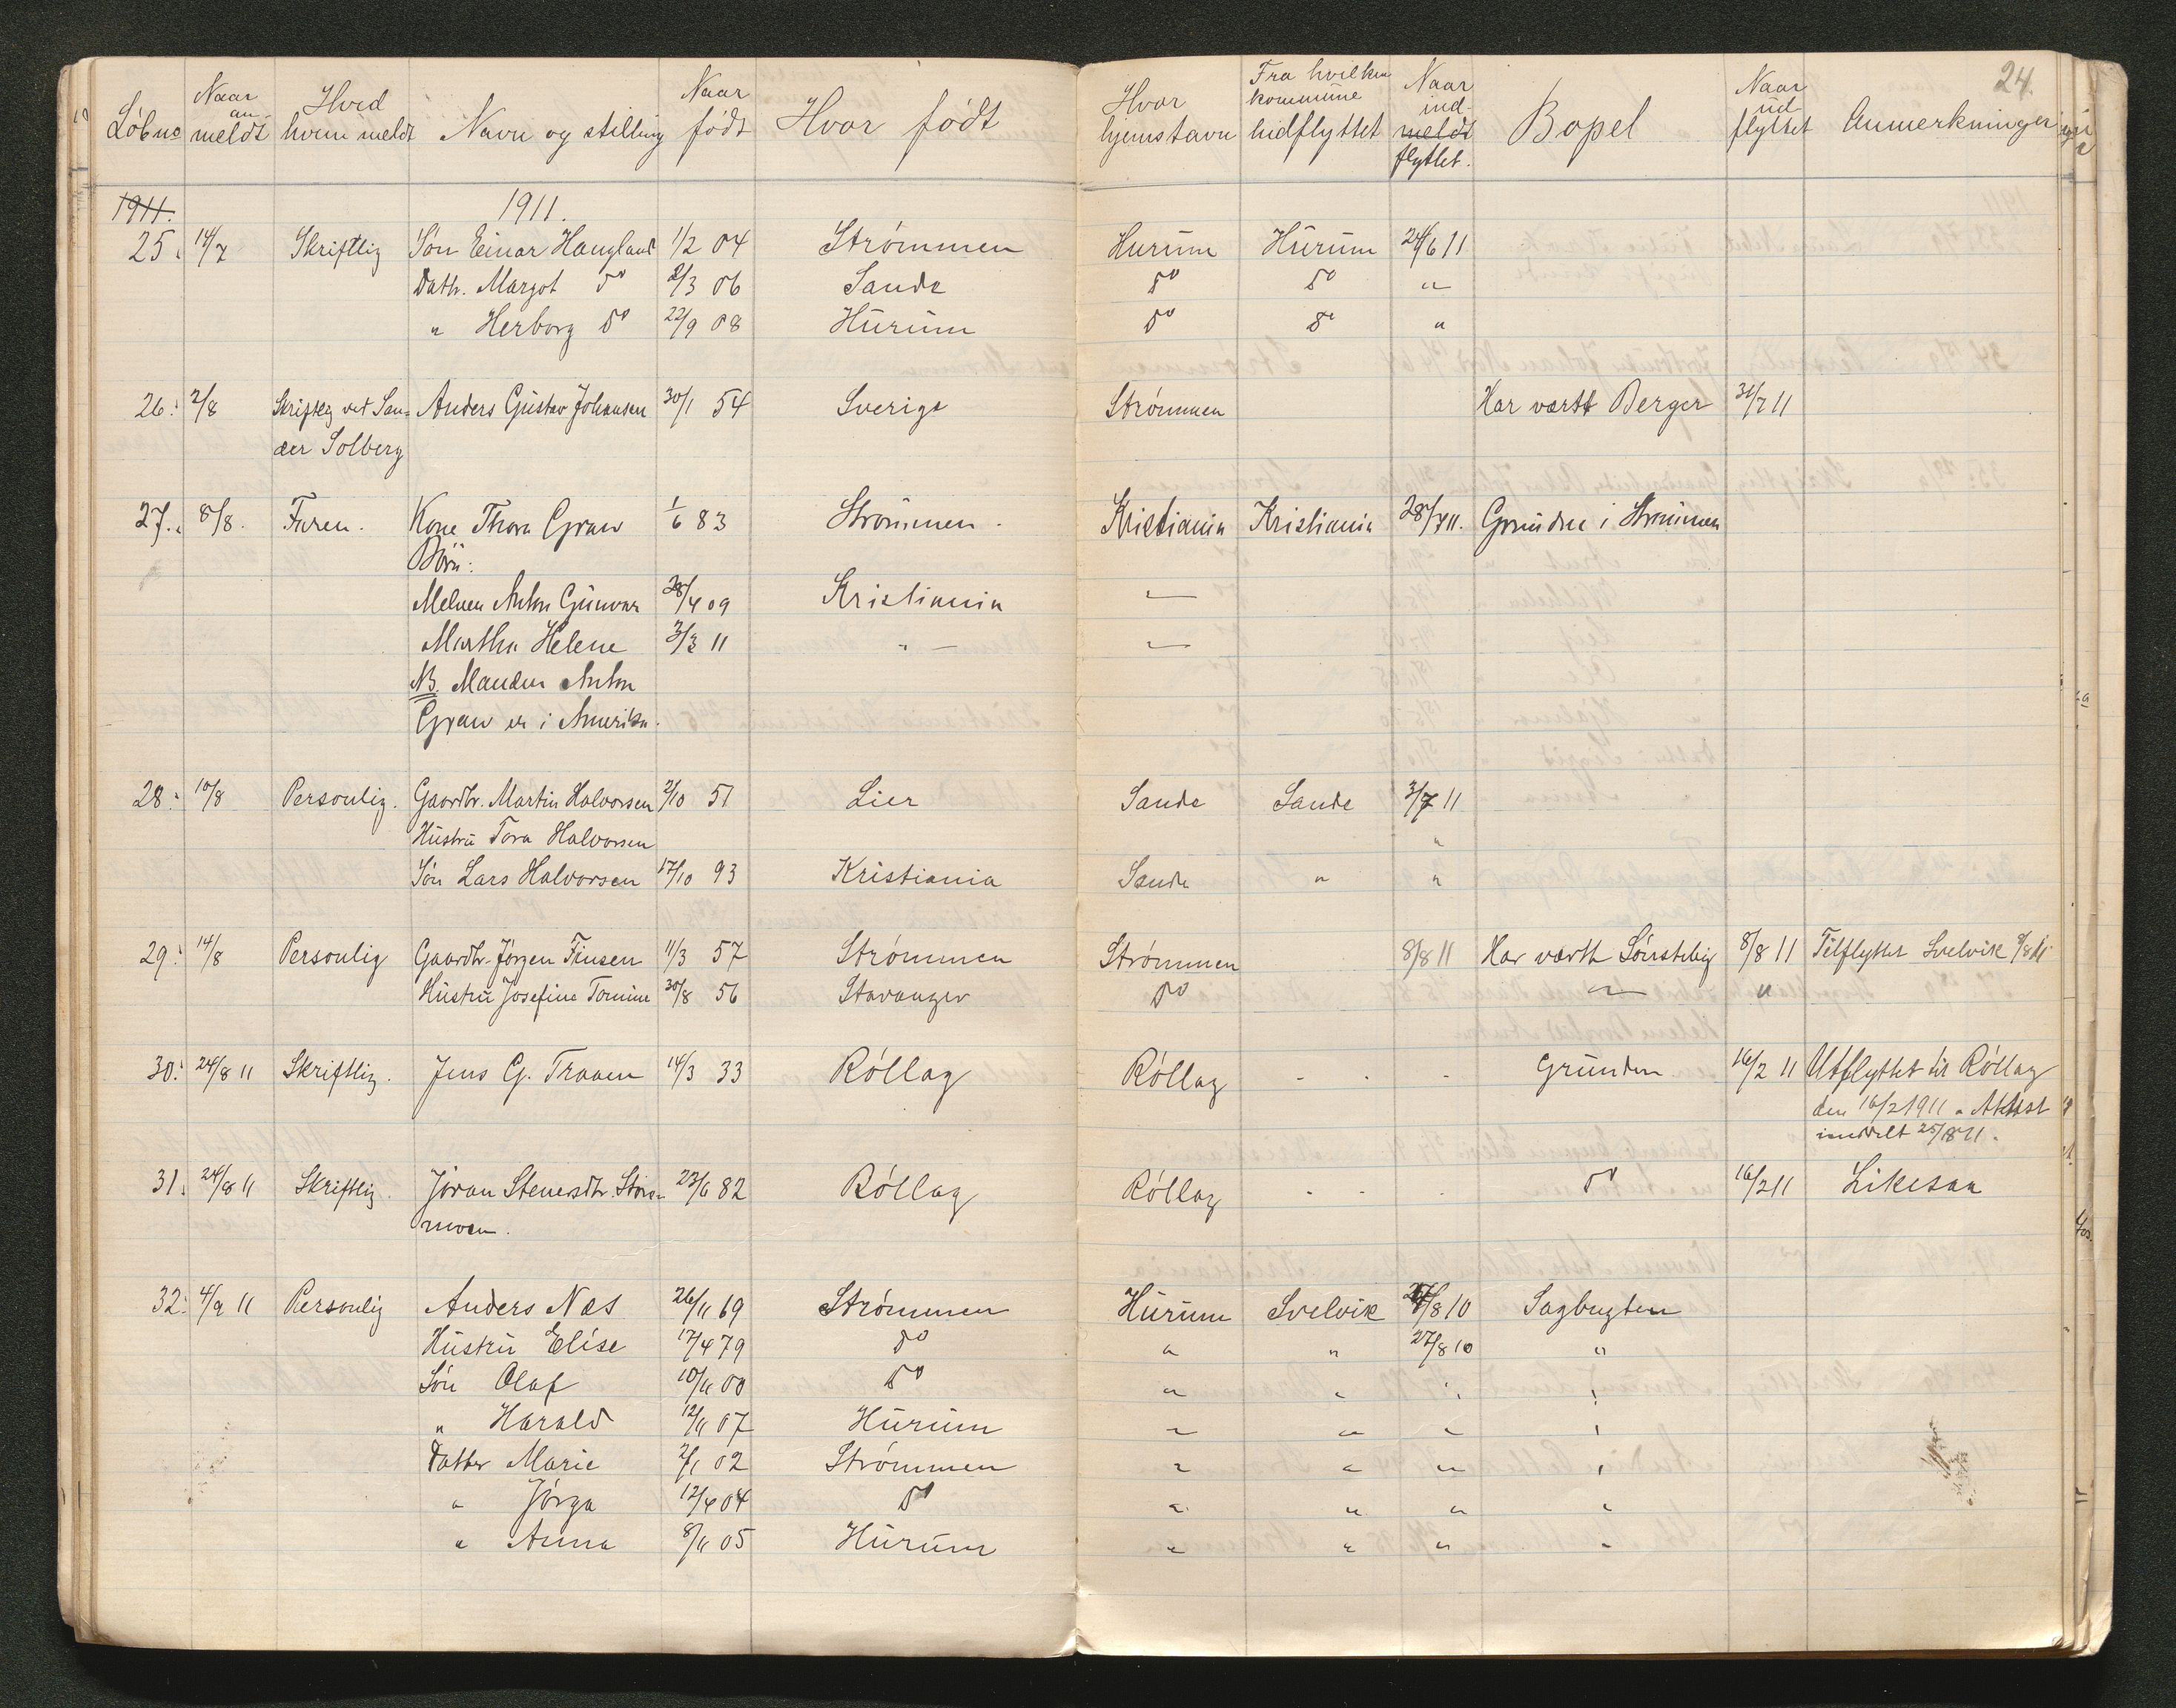 24.
Løbno Naar anmeldt Hvad hvem meldt Navn og stilling Naar født Hvor født Hvor hjemstavn Fra hvilken kommune hidflyttet Naar ind- meldt flyttet. Bopel Naar udflyttet Anmerkninger
1911. 1911.
25. 14/7 Skriftlig Søn Einar Haugland 1/2 04 Strømmen Hurum Hurum 24/6 11
Datr. Margot do 2/3 06 Sande do do "
" Herborg do 22/9 08 Hurum do do "
26. 2/8 Skriftlig ved San- Anders Gustav Johansen 30/1 54 Sverige Strømmen Har vært Berger 31/7 11
der Solberg
27. 8/8. Faren. Kone Thora Graw 1/6 83 Strømmen. Kristiania Kristiania 28/7 11. Grunden i Strømmen
Børn:
Anton Gunvar 28/4 09 Kristiania "
Martha Helene 3/3 11 " "
NB. Manden Anton
Graw er i Amerika.
28. 10/8 Personlig. Gaardbr. Martin Halvorsen 2/10 51 Lier Sande Sande 3/7 11
Hustru Tora Halvorsen "
Søn Lars Halvorsen 17/10 93 Kristiania Sande " "
29. 14/8 Personlig Gaardbr. Jørgen Finsen 11/3 57 Strømmen Strømmen 8/8 11 Har vært Sønstebig 8/8 11 Tilflyttet Svelvik 8/8 11
Hustru Josefine Tomine 30/8 56 Stavanger do " "
30. 24/8 11 Skriftlig. Jens G. Traaen 14/3 33 Rollag Rollag - - - Grunden 16/2 11 Utflyttet til Rollag
den 16/2 1911. Attest
inndelt 25/8 11.
31. 24/8 11 Skriftlig. Jøran Stenersdtr. Stor- 23/6 82 Rollag Rollag - - - do 16/2 11 Likesaa
moen.
32. 4/9 11 Personlig Anders Næs 26/11 69 Strømmen Hurum Svelvik 27/8 10 Sagbugten
Hustru Elise 17/4 79 do " " 27/8 10 "
Søn Olaf 10/11 00 do " " " "
" Harald 12/11 07 Hurum " " " "
Datter Marie 2/1 02 Strømmen " " " "
" Jørga 12/4 04 do " " " "
" Anna 8/11 05 Hurum " " " "